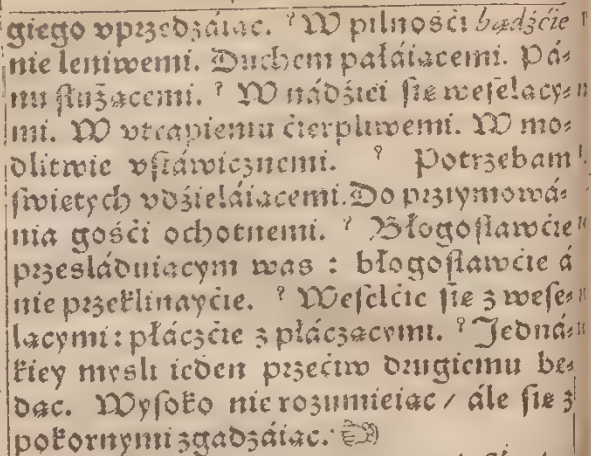 giego vprzedzáiąc. W pilnośći bądźćie
nie leniwemi. Duchem pałáiącemi. Pá⸗
nu służącemi. W nádźiei się weselący⸗
mi. W vtrapieniu ćierpliwemi. W mo⸗
dlitwie vstáwicznemi. Potrzebam
świętych vdźieláiącemi. Do przyymowá⸗
nia gośći ochotnemi. Błogosławćie
prześláduiącym was : błogosławćie á
nie przeklinayćie. Weselćie się z wese⸗
lącymi : płáczćie z płáczącymi. Jedná⸗
kiey myśli ieden przećiw drugiemu bę⸗
dąc. Wysoko nie rozumieiąc / ále się z
pokornymi zgadzáiąc.